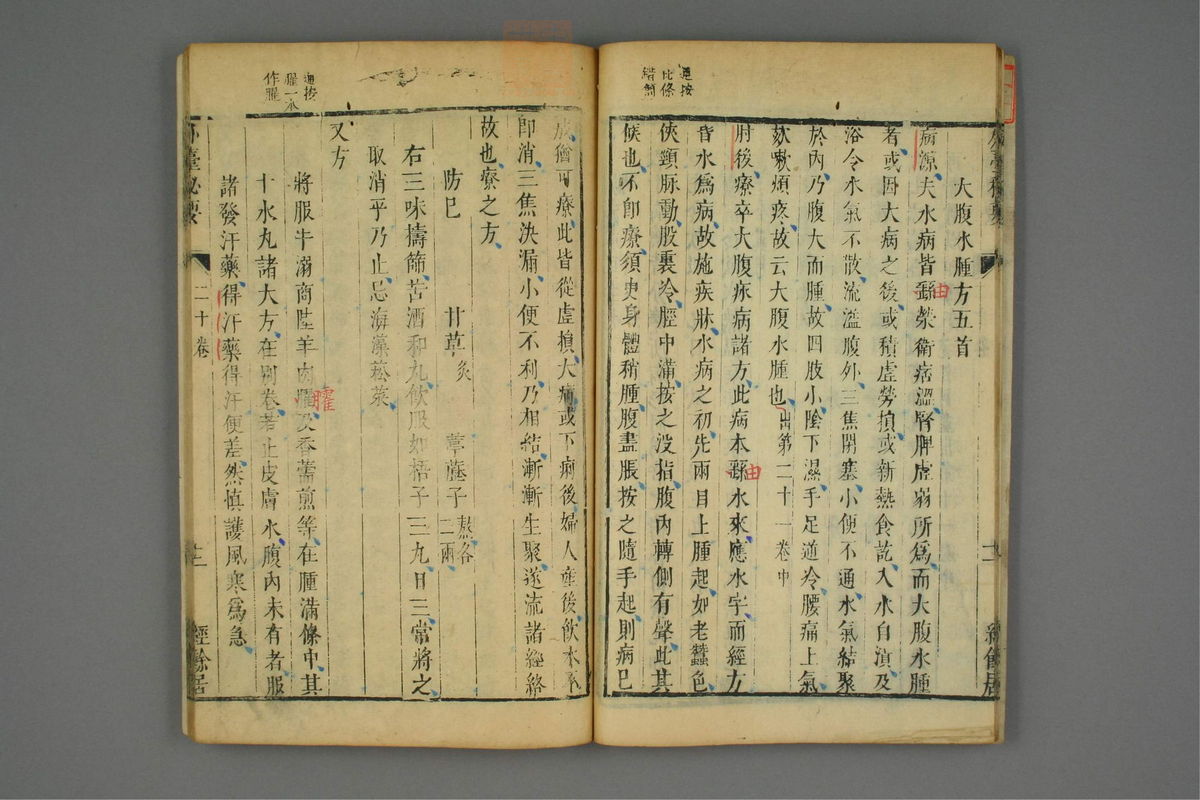 大腹水腫方五首
病源夫水病皆繇榮衛痞澀腎脾虛弱所爲而大腹水腫
者或因大病之後或積虛勞損或新熱食訖入水自漬及
浴令水氣不散流溢腹外三焦閉塞小便不通水氣結聚
於內乃腹大而腫故四肢小陰下濕手足逆冷腰痛上氣
欬嗽煩疼故云大腹水腫也出第二十一卷中
肘後療卒大腹病諸方此病本繇水來應水字而經方
昔水爲病故施疾狀水病之初先兩目上腫起如老蠶色
俠頸脉動股裏冷脛中滿按之没指腹內轉側有聲此其
候也不即療須臾身體稍腫腹盡脹按之隨手起則病已
由
由
逈按
比條
錯簡
十一
成猶可療此皆從虛損大病或下痢後婦人產後飲水不
即消三焦決漏小便不利乃相結漸漸生聚遂流諸經絡
故也療之方
防巳 甘草炙 葶藶子熬各二兩
右三味擣篩苦酒和丸飲服如梧子三丸日三常將之
取消乎乃止忌海藻菘菜
又方
將服牛溺商陸羊肉臛及香薷煎等在腫滿條中其
十水丸諸大方在別卷若止皮膚水腹內未有者服
諸發汗藥得汗藥得汗便差然慎護風寒爲急
臛
逈按
臛一本
作臛
外臺秘要
二十卷
十二
經餘居